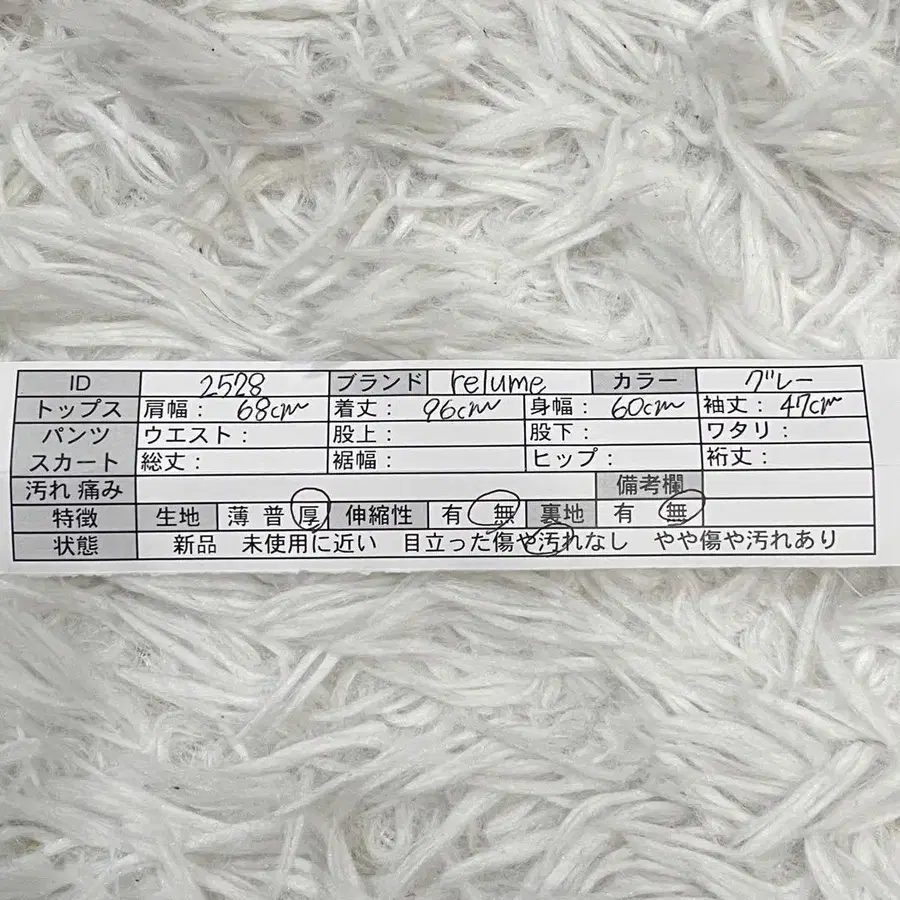 ID 2528 ブランド relume カラー グレー
トップス 肩幅： 68cm 着丈： 96cm 身幅： 60cm 袖丈： 47cm
パンツ ウエスト： 股上： 股下： ワタリ：
スカート 総丈： 裾幅： ヒップ： 裄丈：
汚れ 痛み 備考欄
特徴 生地 薄 普 厚 伸縮性 有 無 裏地 有 無
状態 新品 未使用に近い 目立った傷や汚れなし やや傷や汚れあり